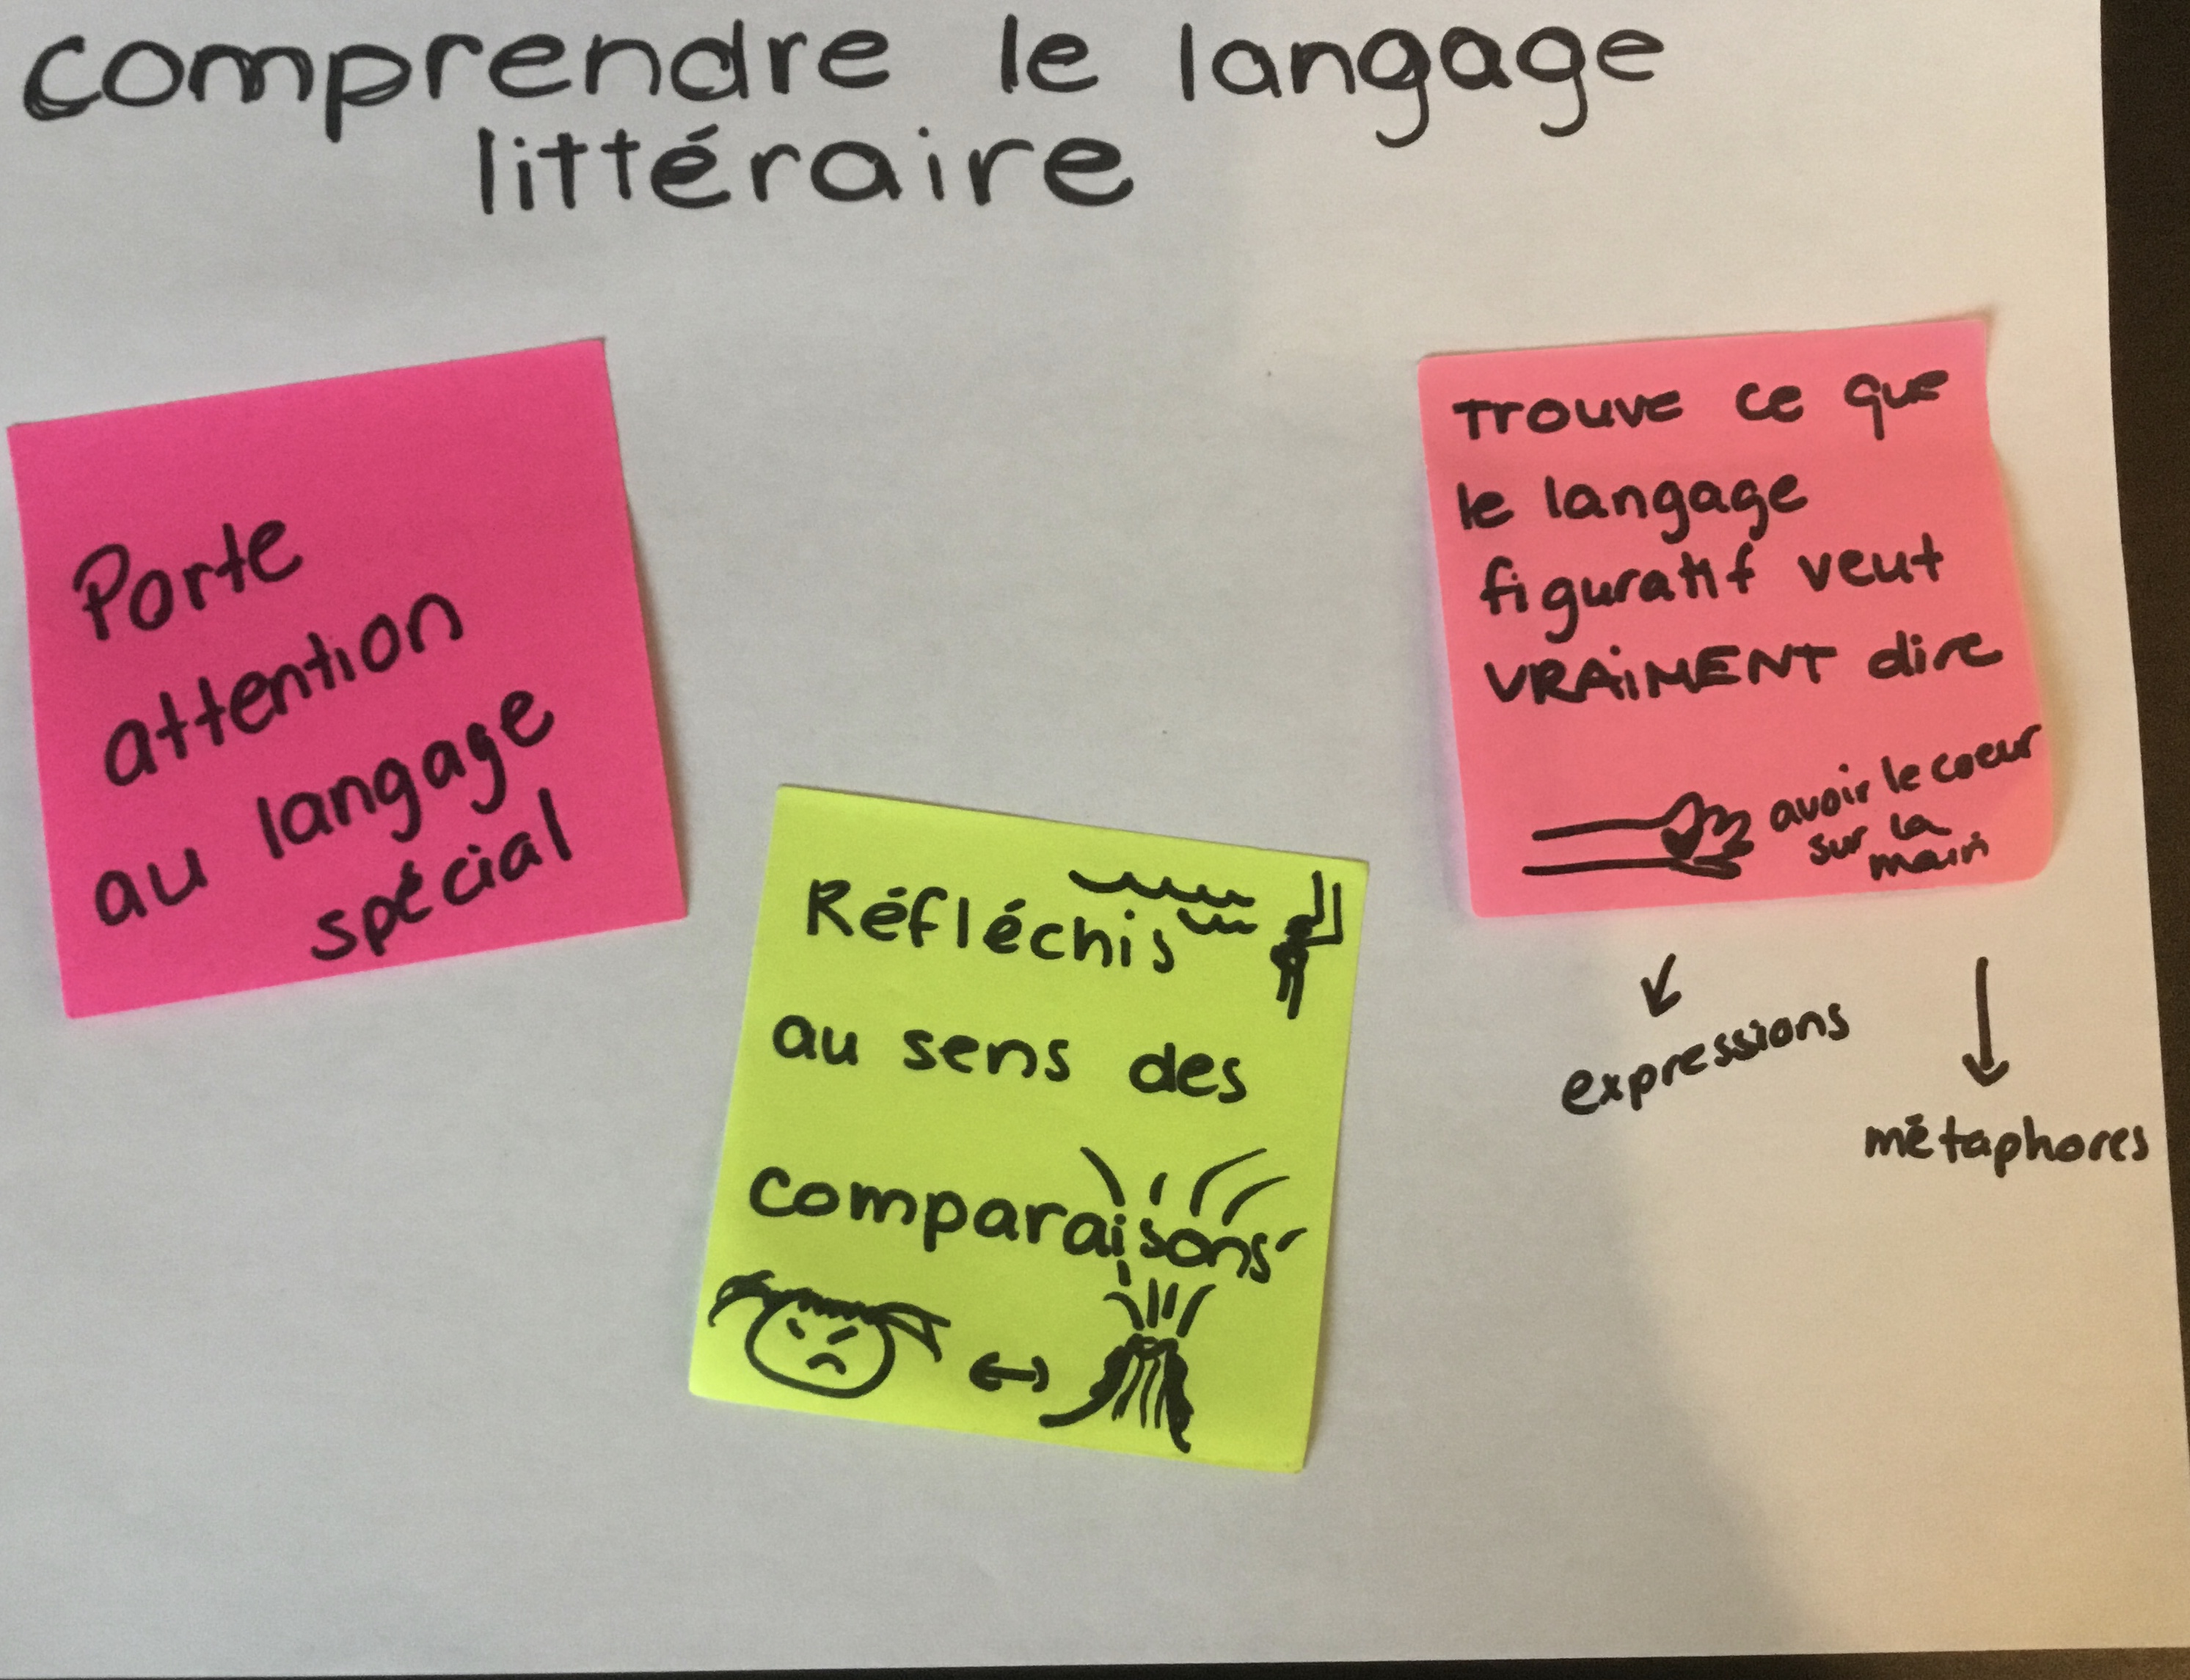 comprendre le langage
littéraire
Porte
attention
au langage
spécial
Réfléchis
au sens des
comparaisons
Trouve ce que
le langage
figuratif veut
VRAiMENT dire
avoir le coeur
sur la
main
expressions
métaphores